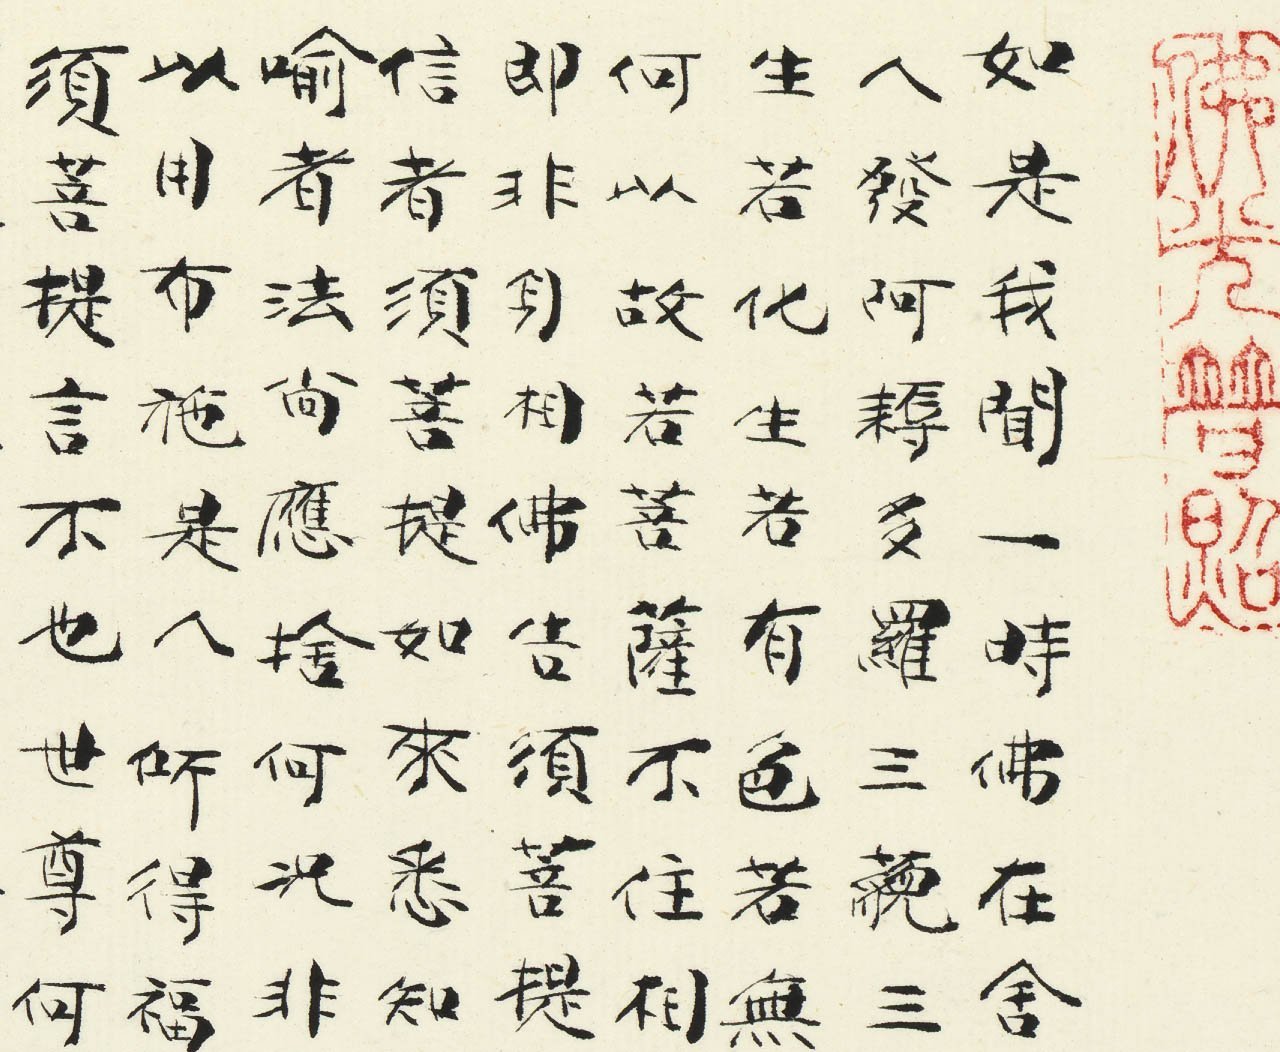 佛光普照
如是我聞一時佛在舍
人發阿耨多羅三藐三
生若化生若有色若無
何以故若菩薩不住相
即非身相佛告須菩提
信者須菩提如來悉知
喻者法尚應捨何況非
以用布施是人所得福
須菩提言不也世尊何